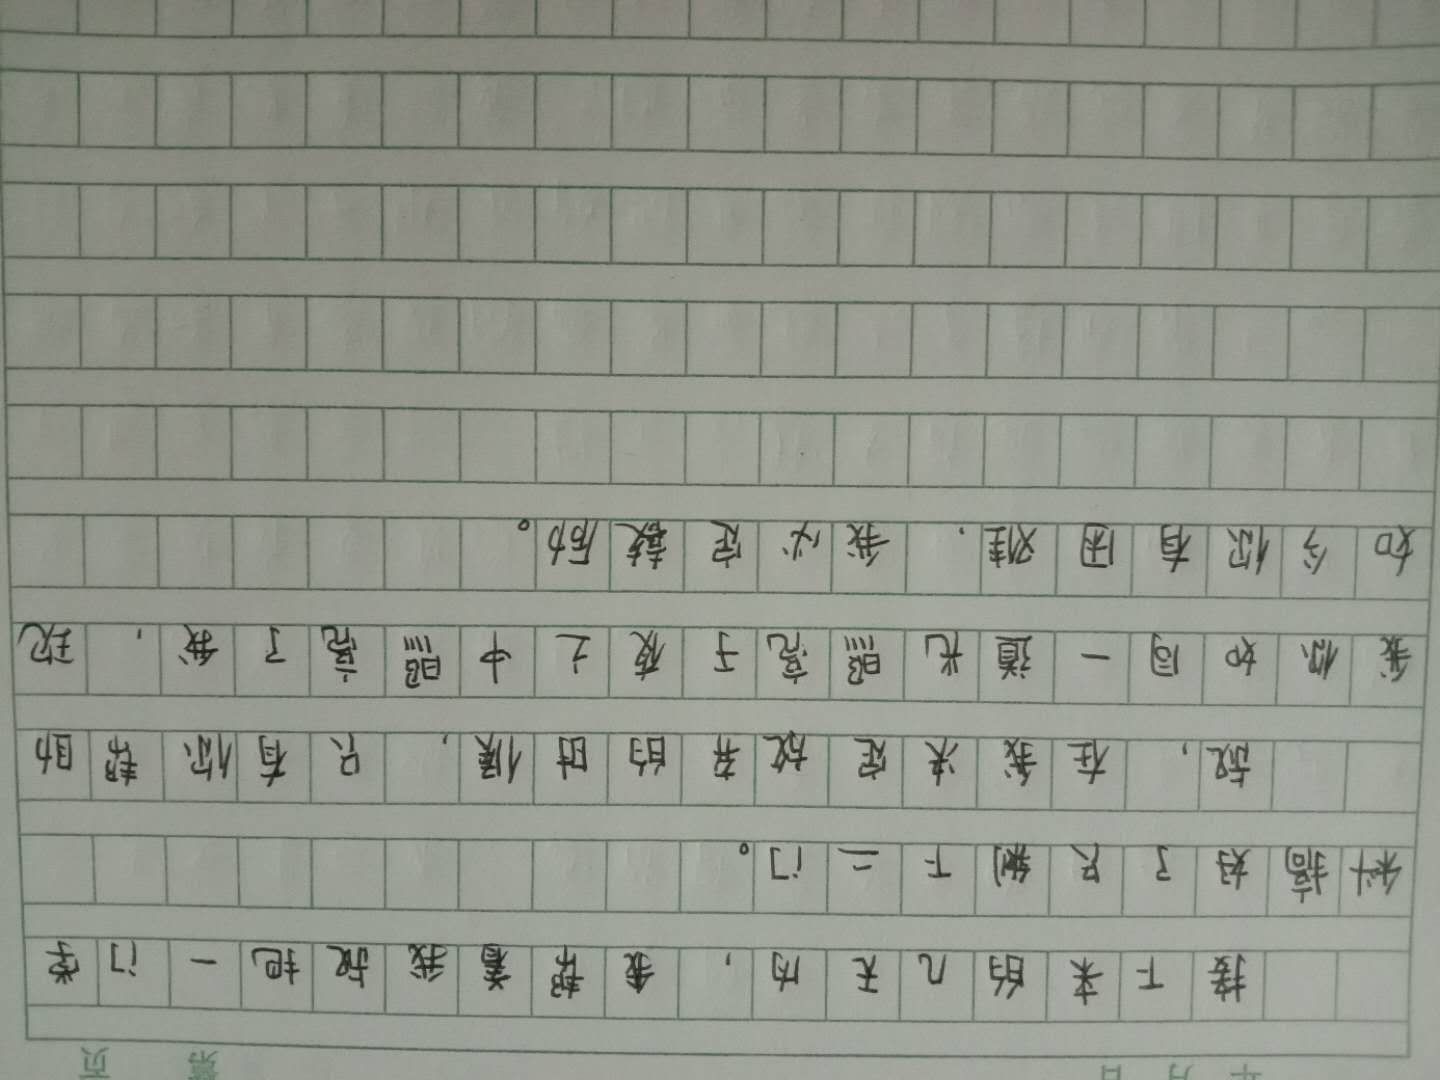 年 月 日 第 页
接下来的几天内,我帮着我把一门学
科搞好了只剩下二门。
,在我决定放弃的时候,只有你帮助
我你如同一道光照亮于夜之中照亮了我,现
如今你有困难,我必定励。